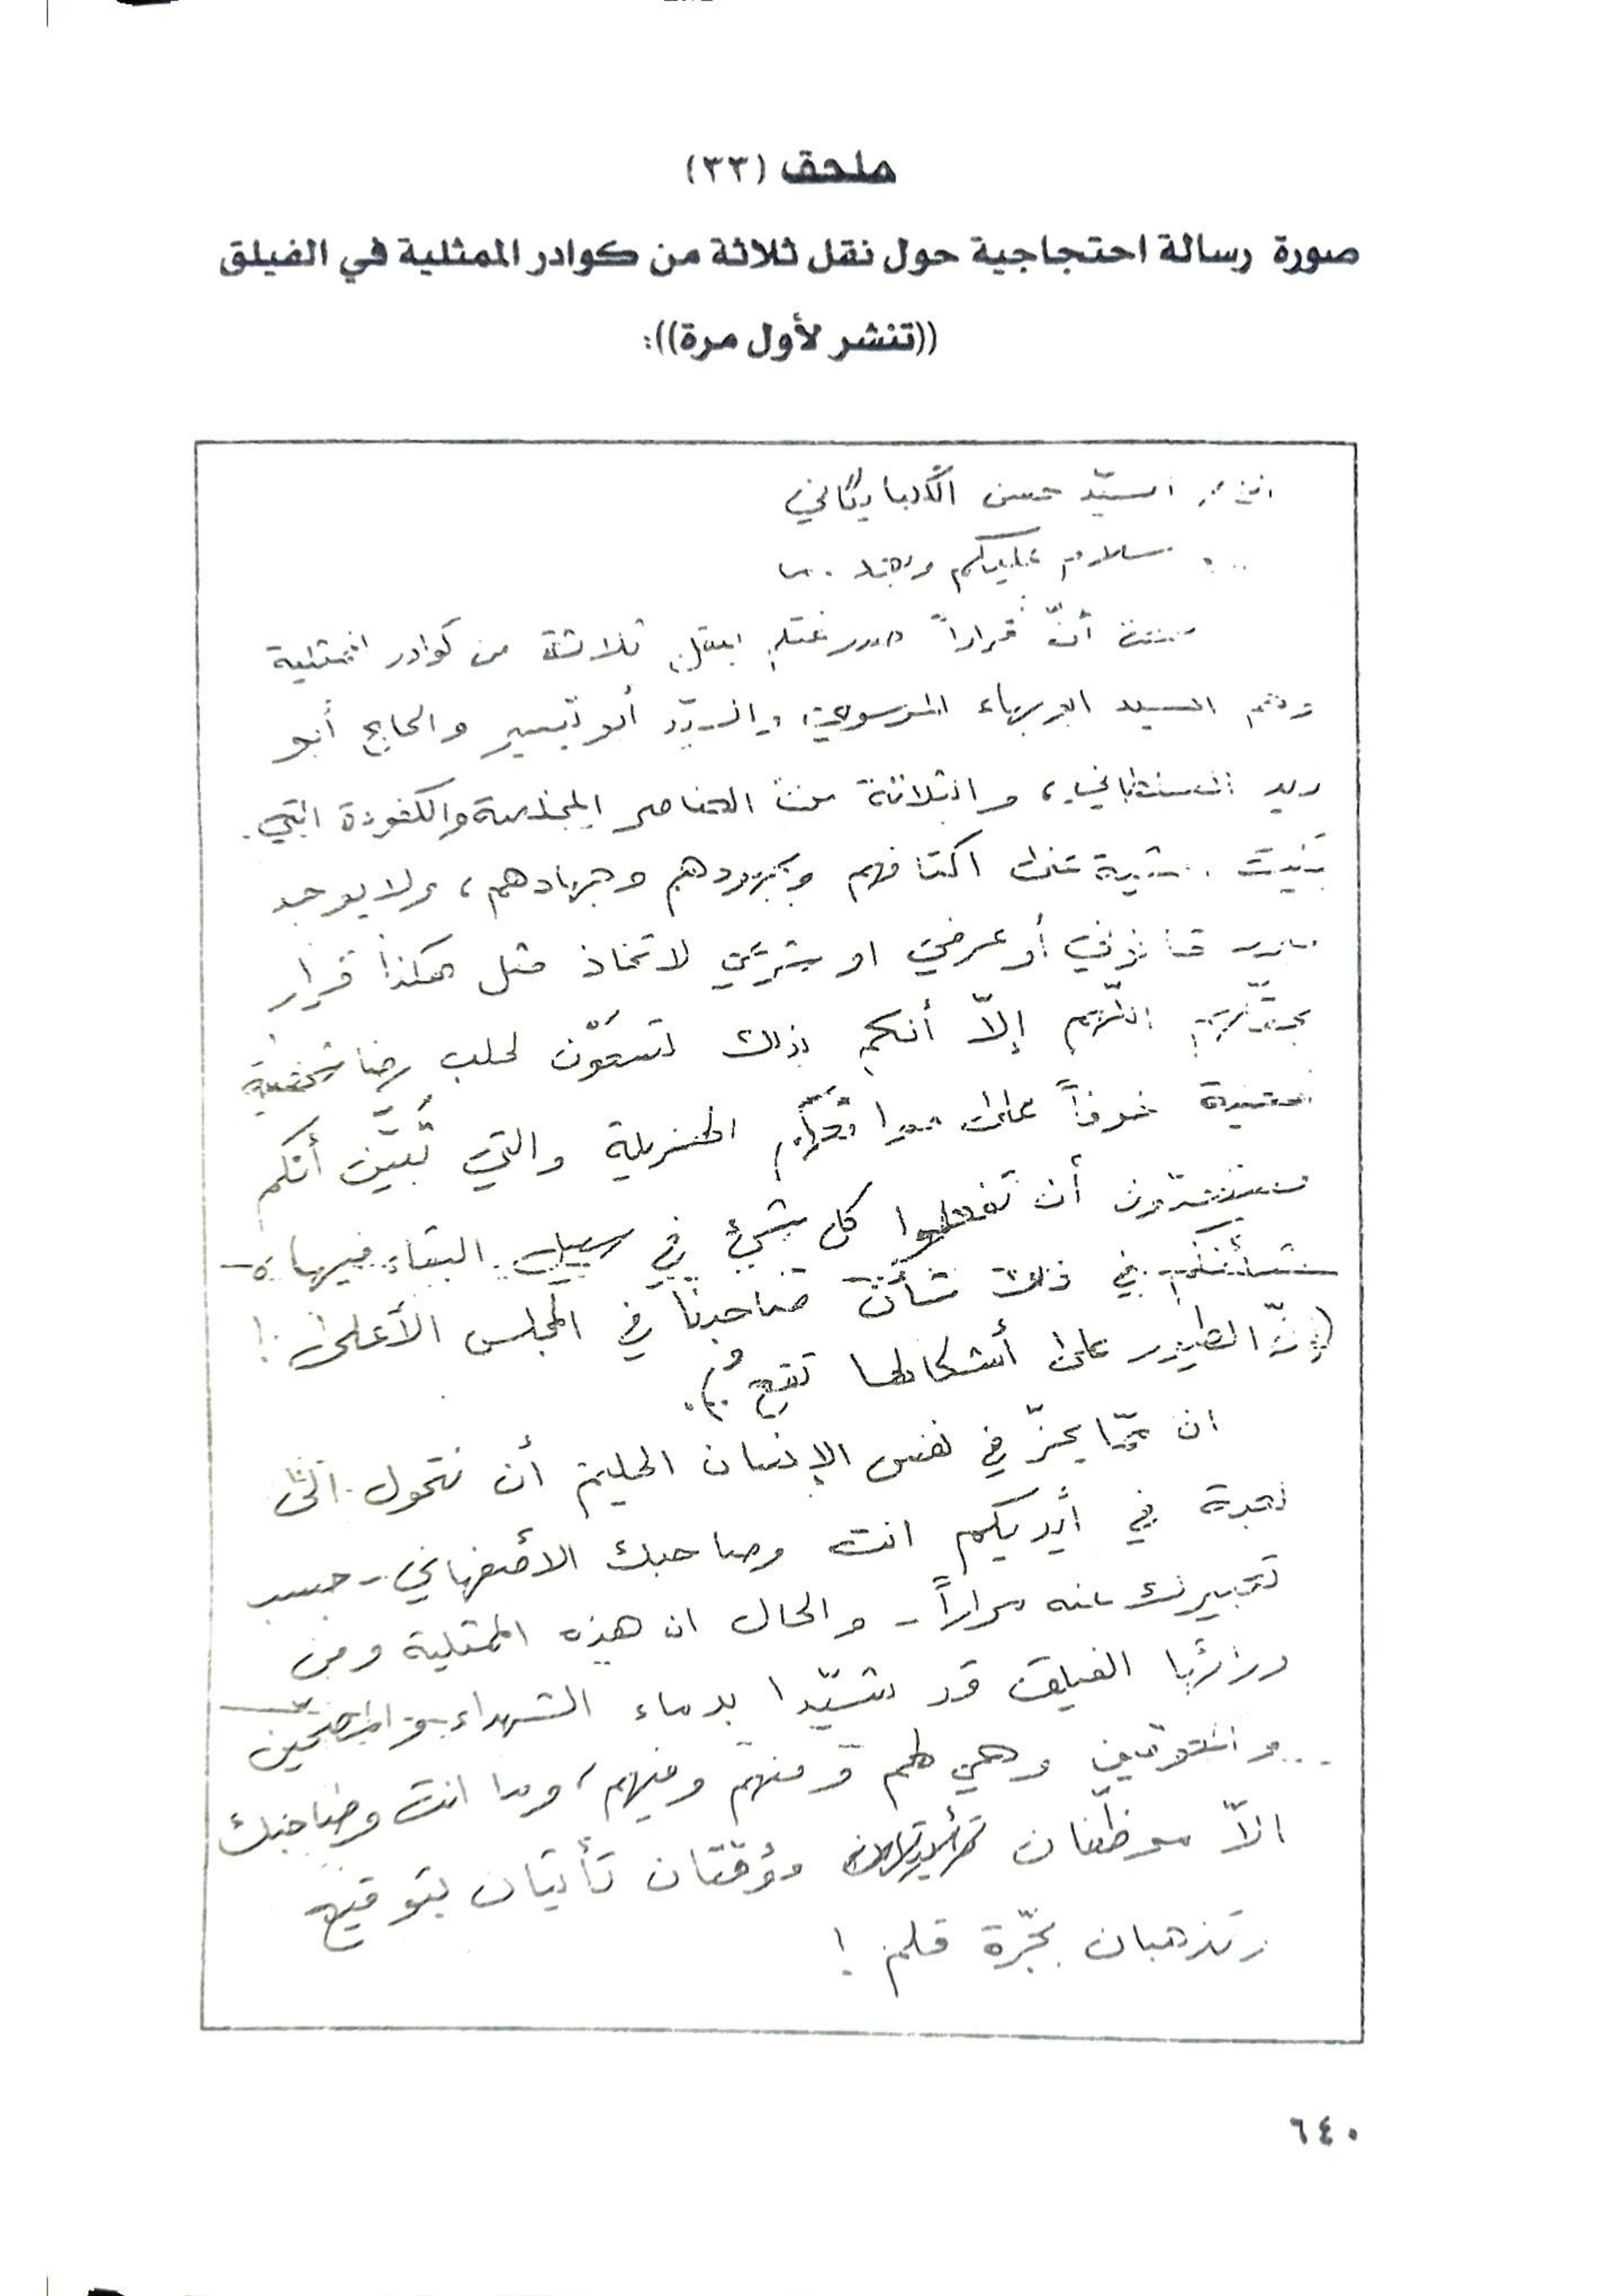 ملحق (٣٣)
صورة رسالة احتجاجية حول نقل ثلاثة من كوادر الممثلية في الفيلق
((تنشر لأول مرة)):
السيّد حسن الگلبايگاني
سلام عليكم وبعد
أنّ قراراً صدر عنكم بنقل ثلاثة من كوادر الممثلية
وهم السيد ابو بهاء الموسوي، والسيّد أبو تيسير والحاج أبو
، والثلاثة من العناصر المخلصة والكفوءة التي
بُنيت على اكتافهم وبجهودهم وجهادهم، ولا يوجد
قانوني أو عرفي او شرعي لاتخاذ مثل هكذا قرار
بحقّهم اللّهم إلاّ أنكم بذلك تسعَوْن لجلب رضا شخصية
معينة خوفاً على مواقعكم الهزيلة والتي تُبيّن أنكم
مستعدون أن تفعلوا كل شيئ في سبيل البقاء فيها،
شأنكم في ذلك شأن صاحبنا في المجلس الأعلى !
(إنّ الطيور على أشكالها تقع).
ان ممّا يحزّ في نفس الإنسان الحليم أن نتحول الى
لعبة في أيديكم انت وصاحبك الأصفهاني - حسب
تعبيرك عنه مراراً - والحال ان هذه الممثلية ومن
ورائها الفيلق قد شيّدا بدماء الشهداء و المضحّين
وهي لهم ومنهم وفيهم، وما انت وصاحبك
الاّ موظّفان مؤقتان تأتيان بتوقيع
وتذهبان بجرّة قلم !
٦٤٠